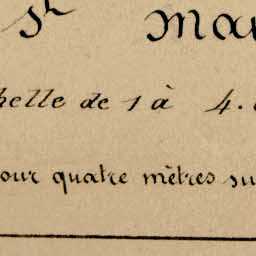 St Mar
helle de 1 à 4.
our quatre mètres su